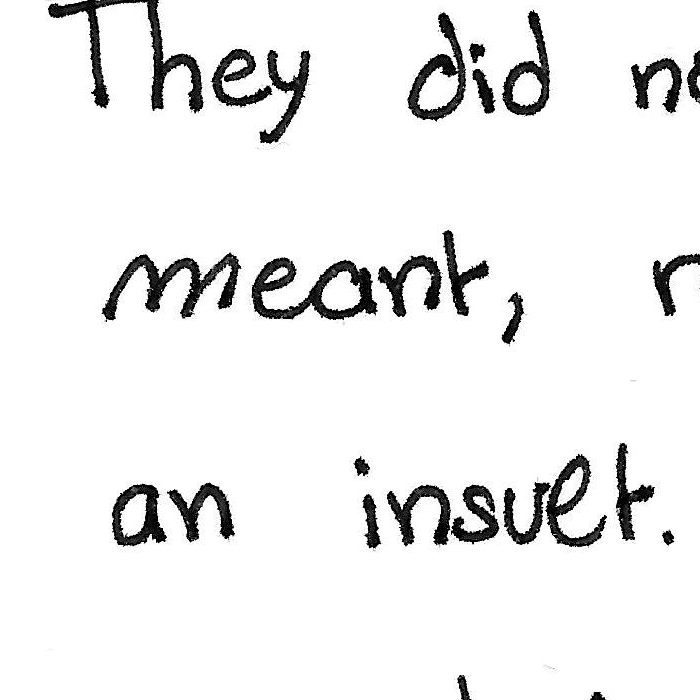 They did
meant,
an insult.